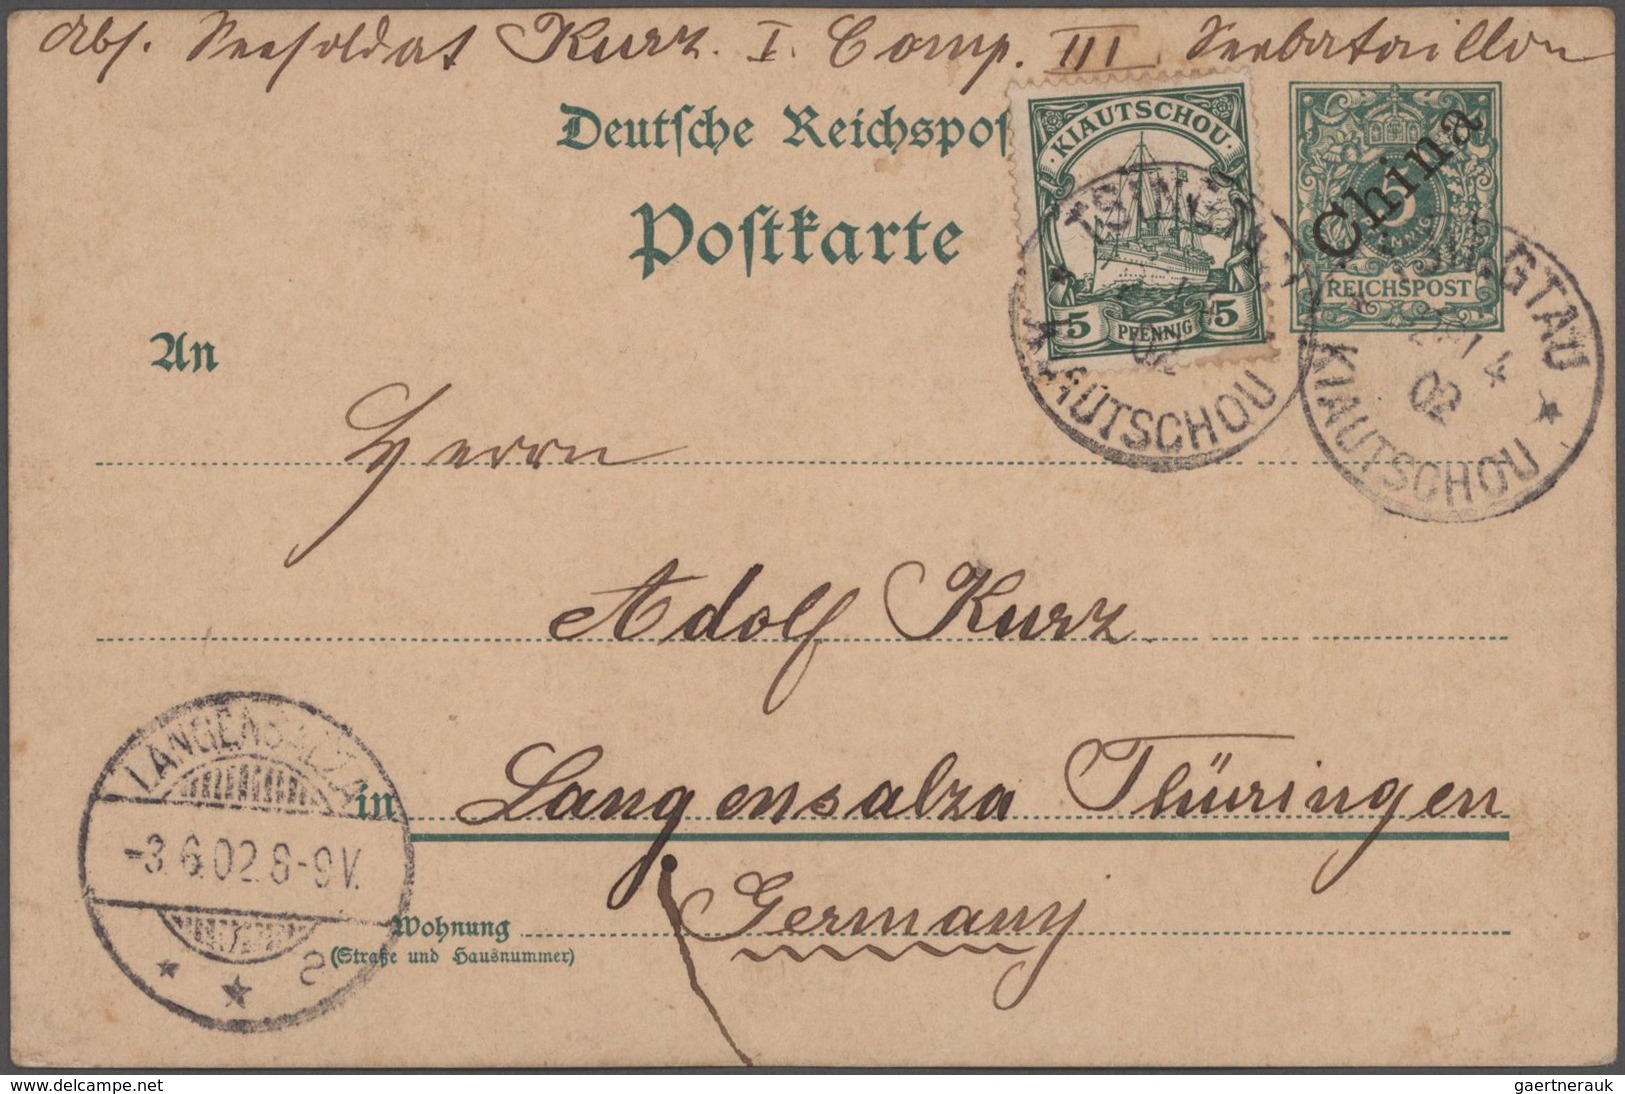 Abs. Seesoldat Kurz. I. Comp. III Seebataillon
Deutsche Reichspos
Postkarte
KIAUTSCHOU
5 PFENNIG 5
China
5
REICHSPOST
TSINGTAU
02
KIAUTSCHOU
TSINGTAU
4
02
KIAUTSCHOU
An
Herrn
Adolf Kurz.
in Langensalza Thüringen
Wohnung
(Straße und Hausnummer)
Germany
LANGENSALZA
-3.6.02.8-9V.
* * a
www.delcampe.net
gaertnerauk